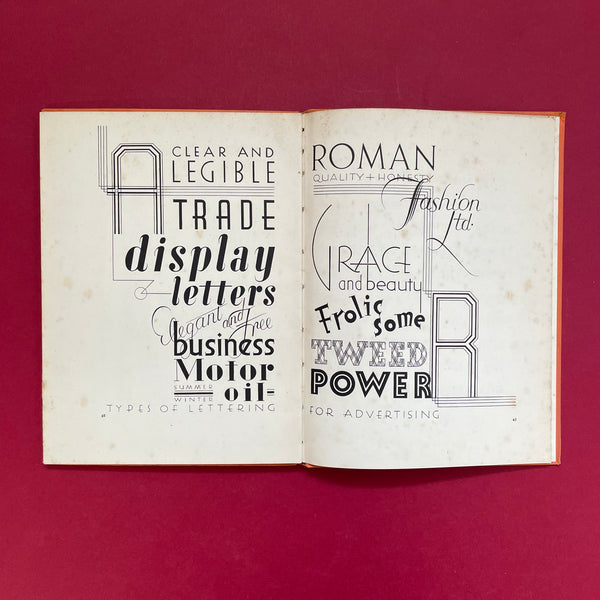 A
CLEAR AND
LEGIBLE
TRADE
display
letters
Elegant and Free
business
Motor
SUMMER
WINTER
oil-
TYPES OF LETTERING
ROMAN
QUALITY + HONESTY
Fashion
Ltd.
GRACE
and beauty
Frolic
some
TWEED
POWER
R
FOR ADVERTISING